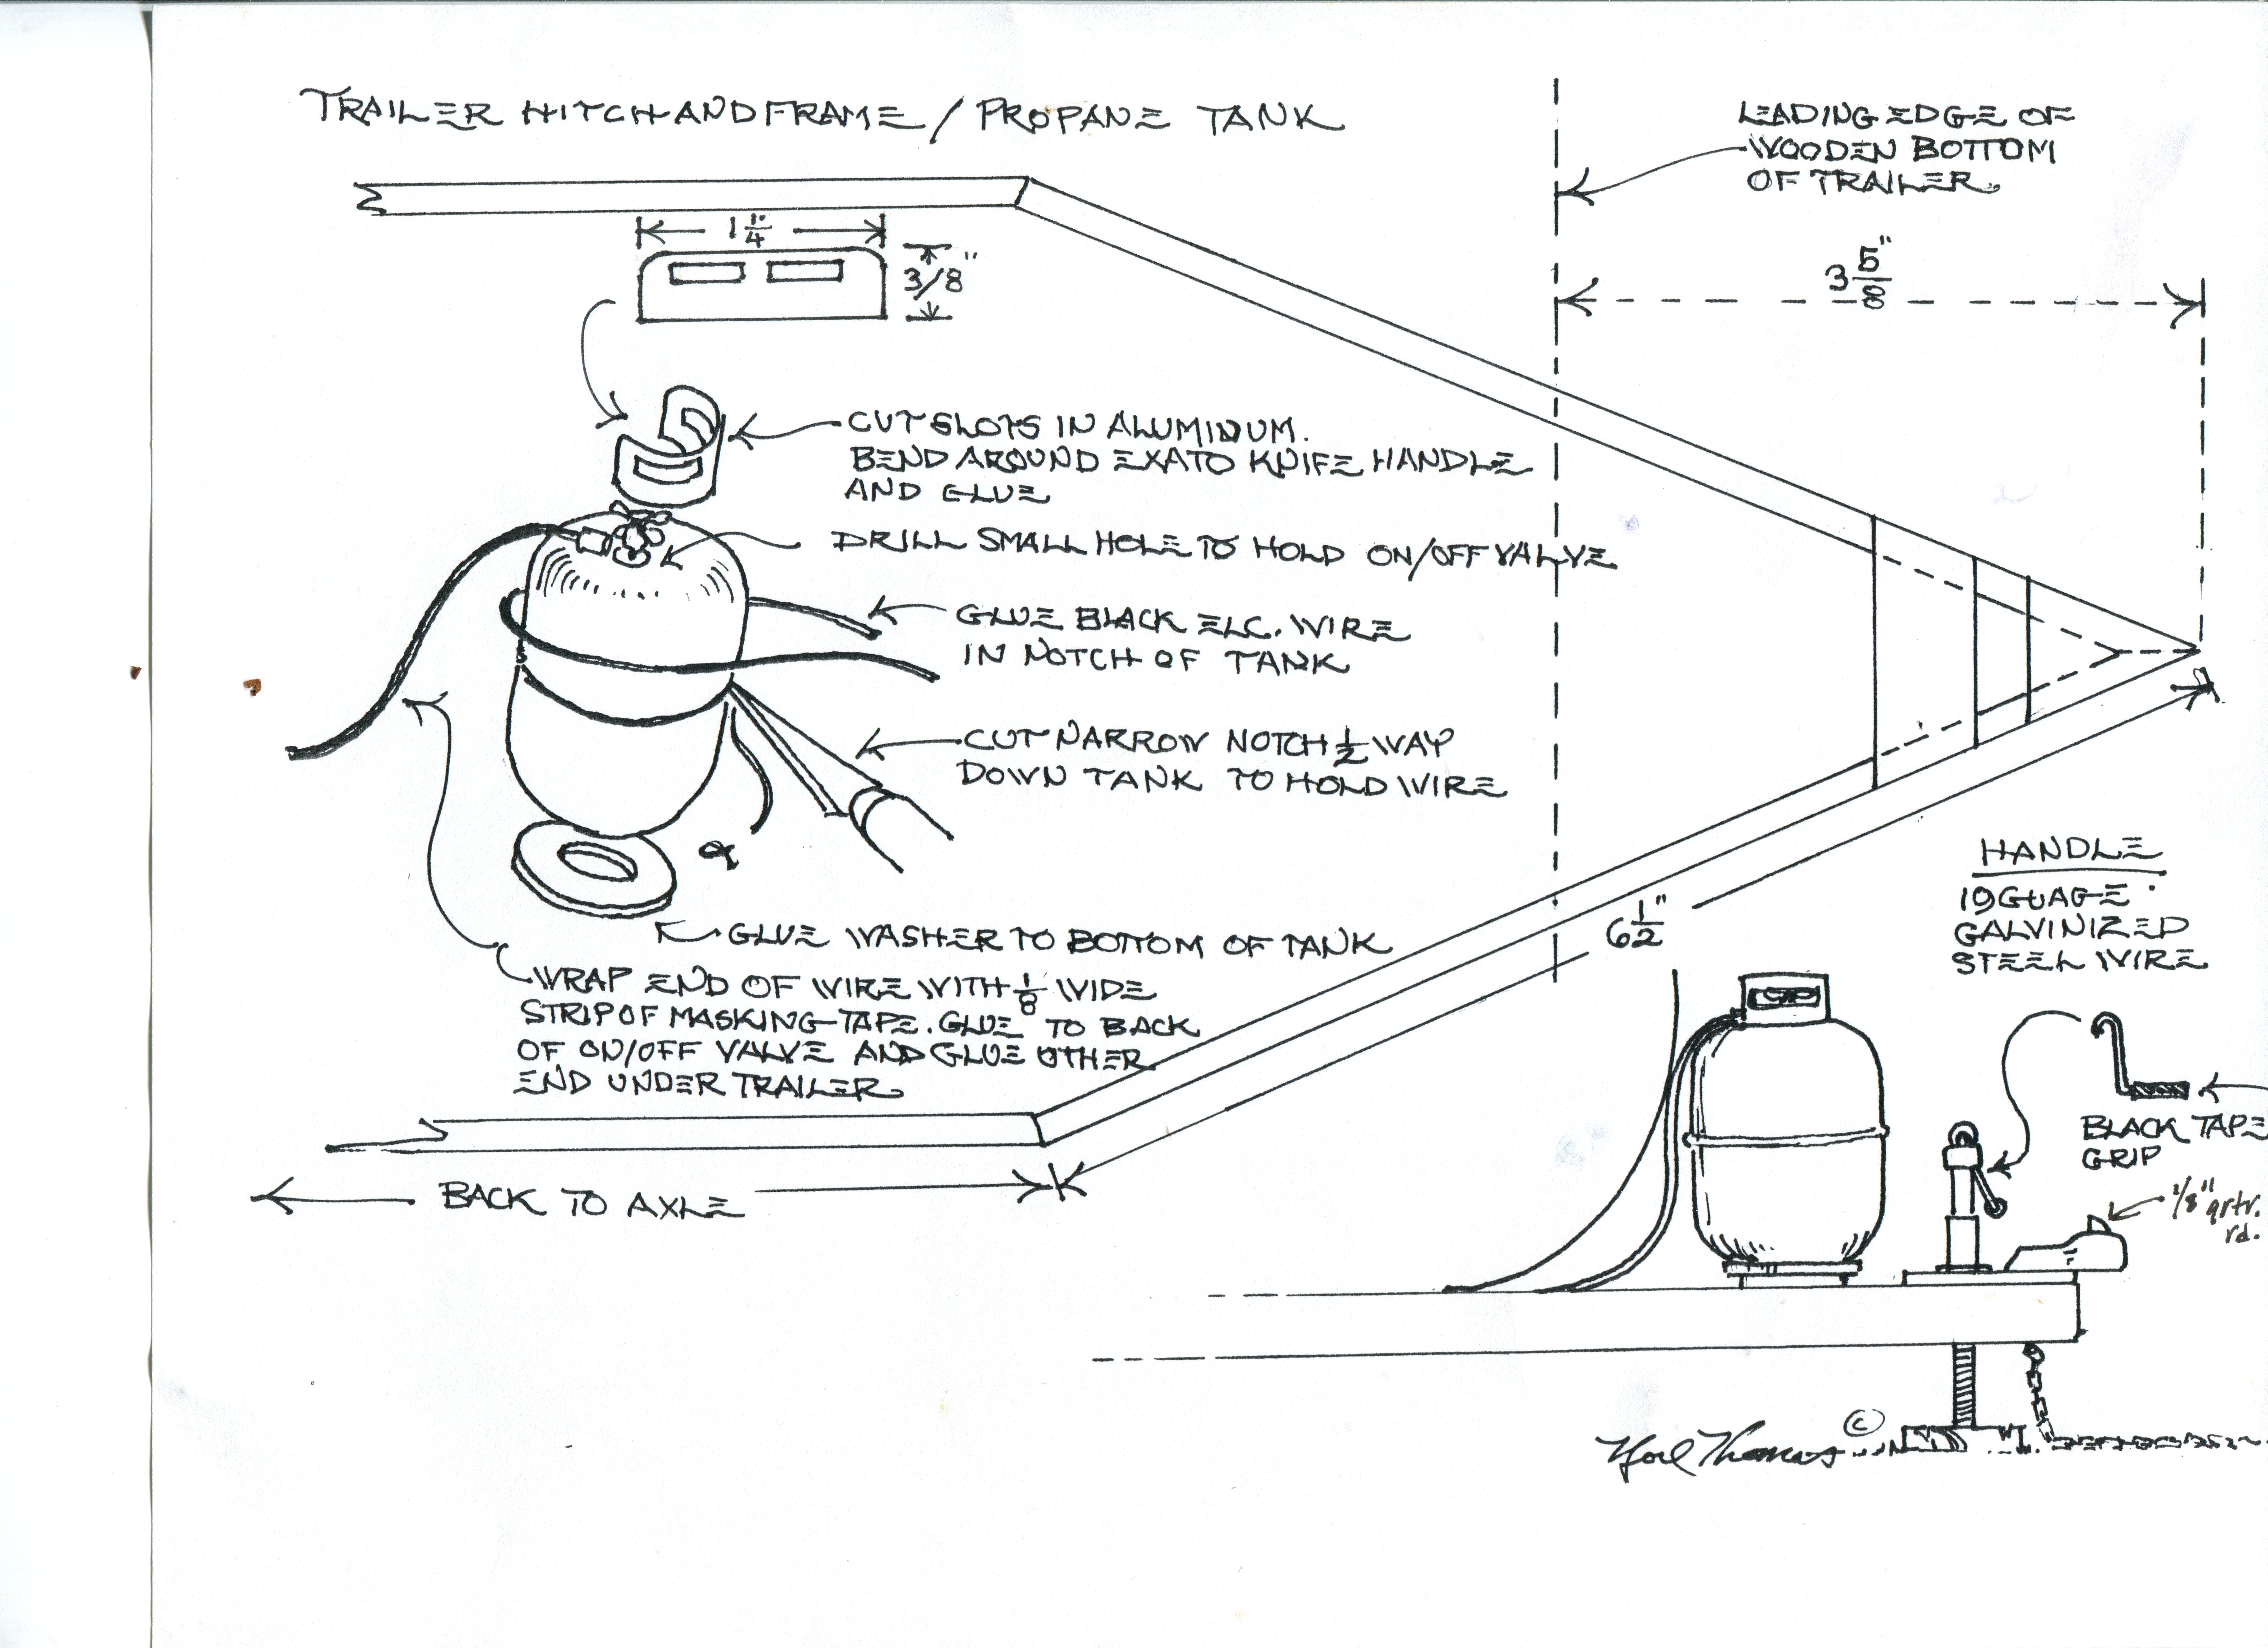 TRAILER HITCH AND FRAME / PROPANE TANK
LEADING EDGE OF
WOODEN BOTTOM
OF TRAILER
1 1/4"
3/8"
3 5/8"
CUT SLOTS IN ALUMINUM.
BEND AROUND EXATO KNIFE HANDLE
AND GLUE
DRILL SMALL HOLE TO HOLD ON/OFF VALVE
GLUE BLACK ELC. WIRE
IN NOTCH OF TANK
CUT NARROW NOTCH 1/2 WAY
DOWN TANK TO HOLD WIRE
GLUE WASHER TO BOTTOM OF TANK
WRAP END OF WIRE WITH 1/8 WIDE
STRIP OF MASKING TAPE. GLUE TO BACK
OF ON/OFF VALVE AND GLUE OTHER
END UNDER TRAILER
6 1/2"
BACK TO AXLE
HANDLE
19 GUAGE
GALVINIZED
STEEL WIRE
BLACK TAPE
GRIP
1/8" qrtr.
rd.
Thomas ©